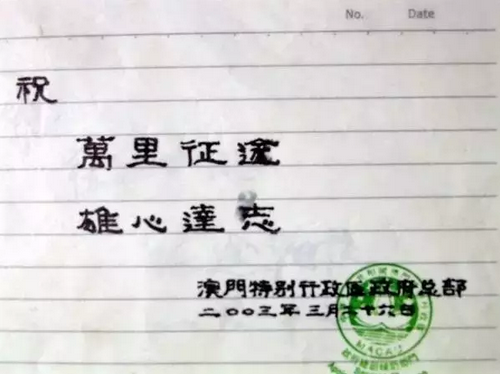 No. Date
祝
萬里征途
雄心達志
澳門特别行政區政府总部
二〇〇三年三月二十六日
MACAU